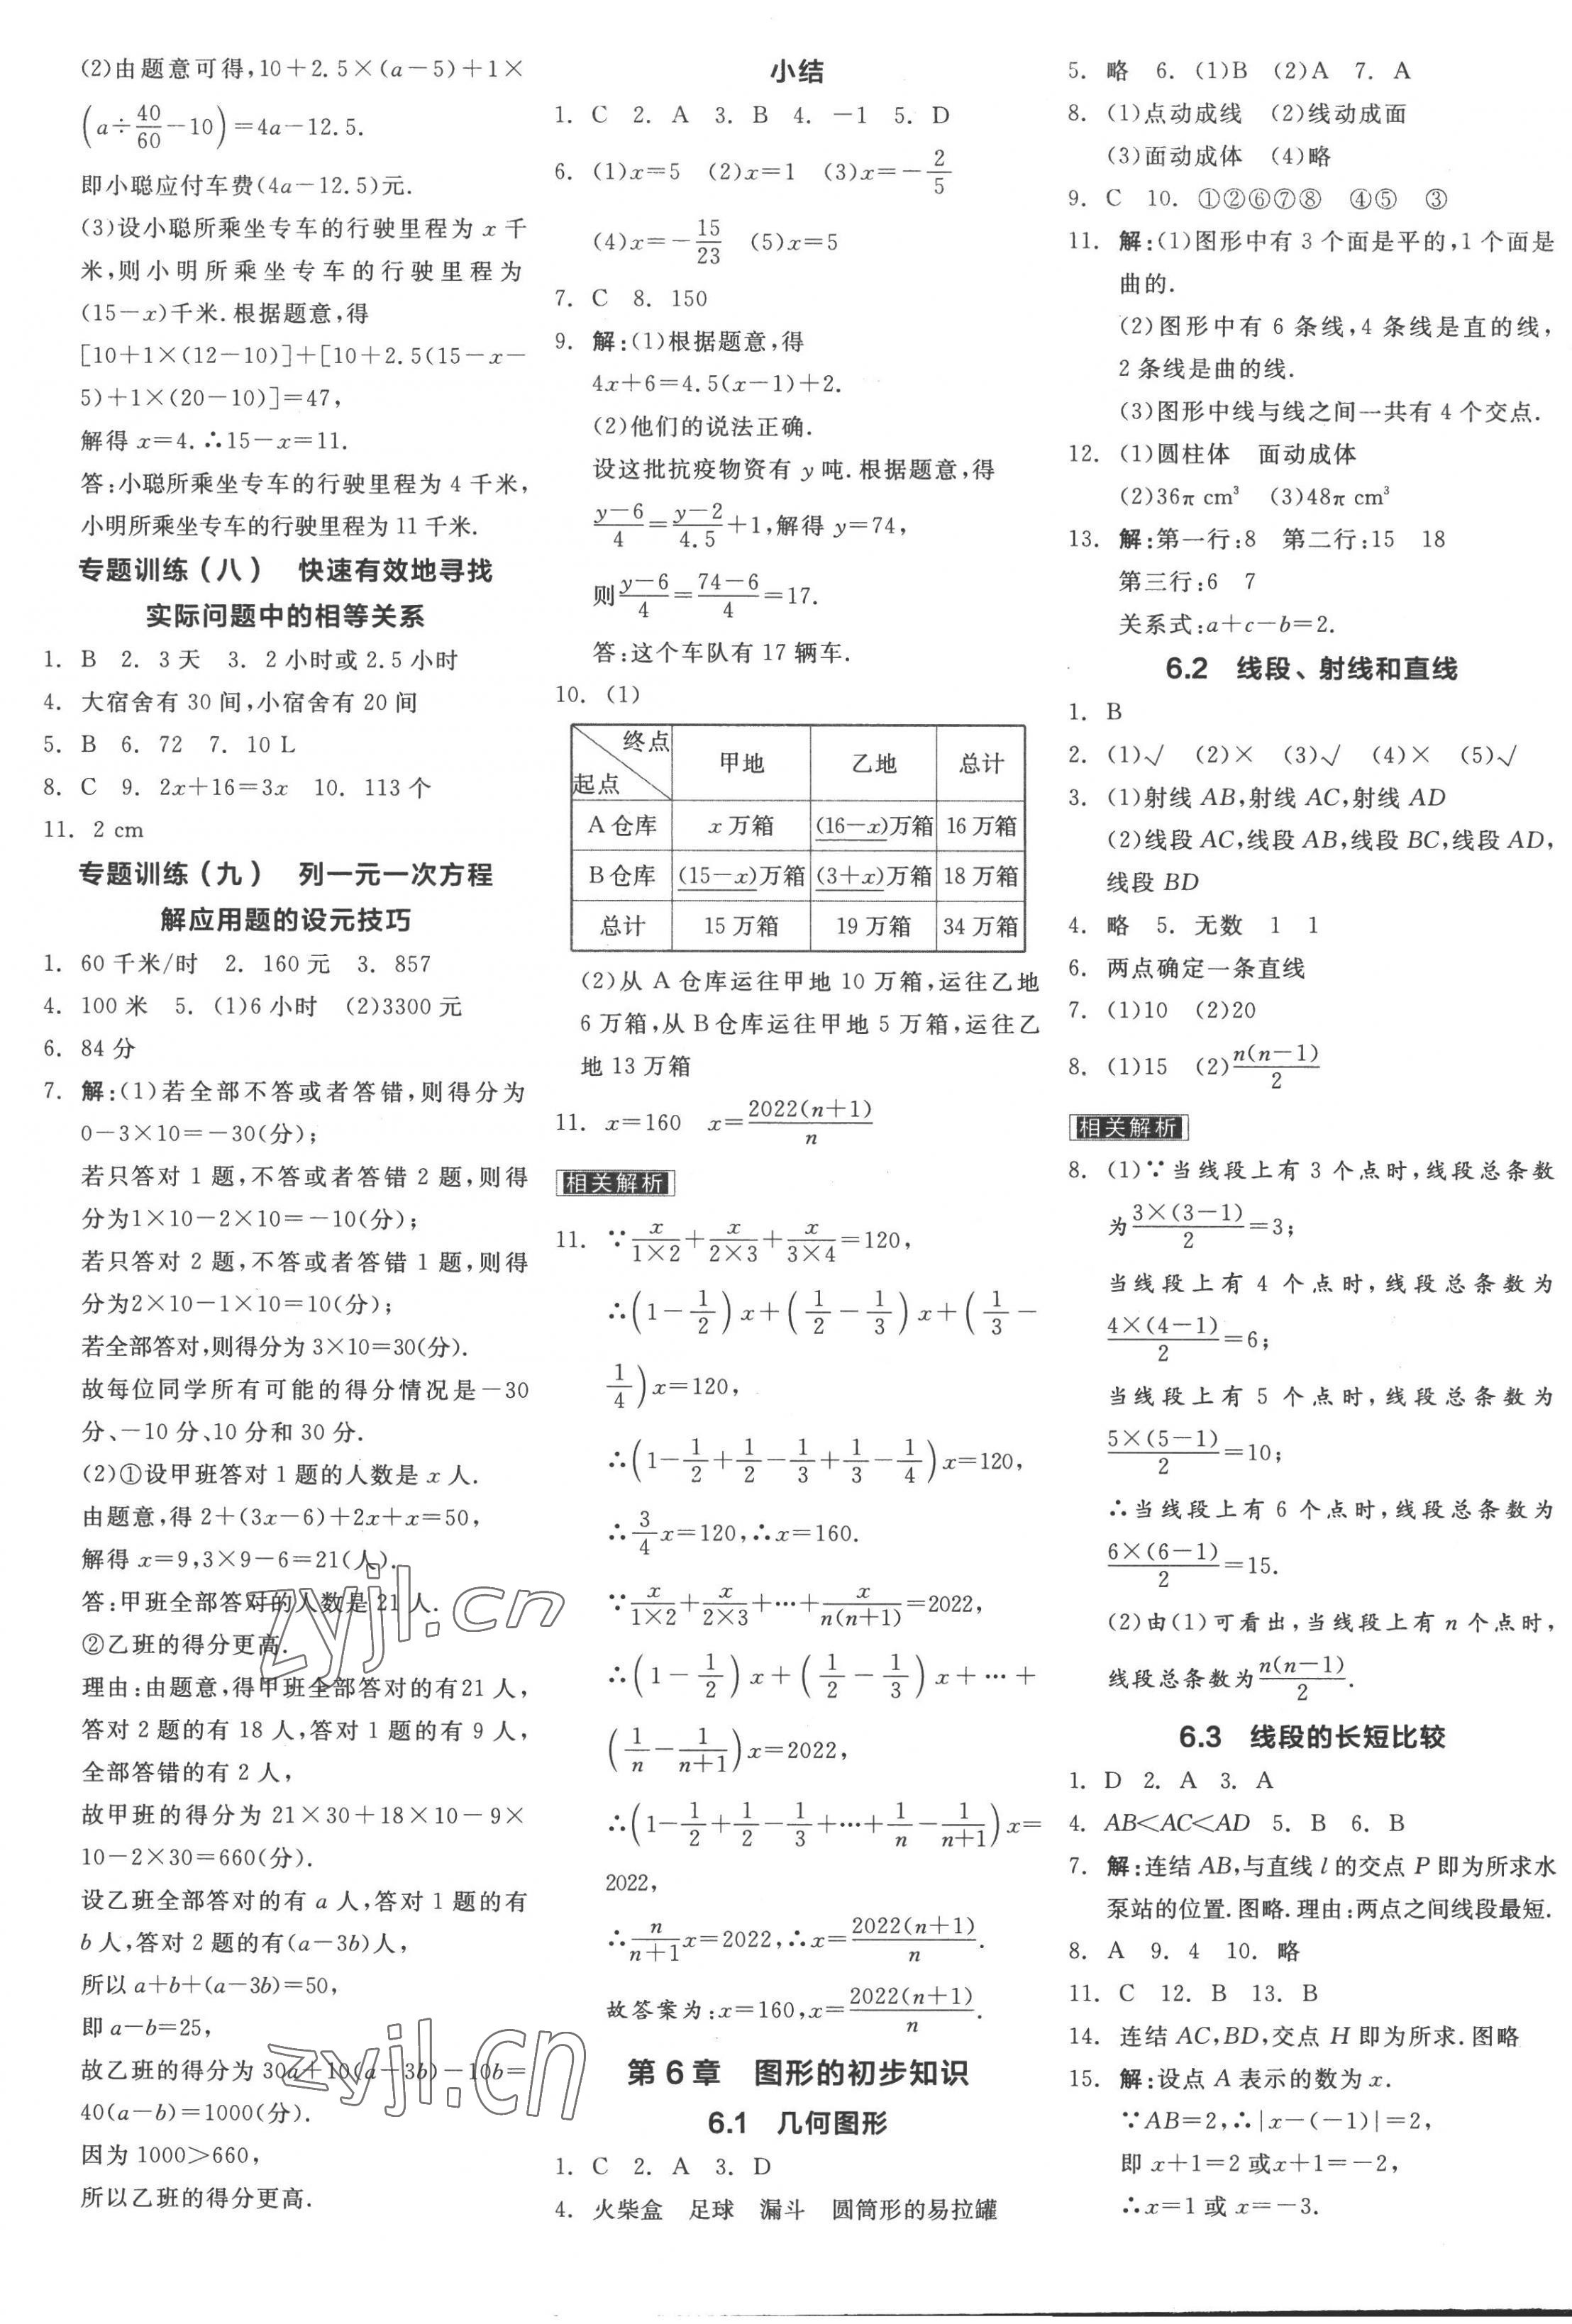 (2)由题意可得,10+2.5×(a-5)+1×
(a÷40/60-10)=4a-12.5.
即小聪应付车费(4a-12.5)元.
(3)设小聪所乘坐专车的行驶里程为 x 千
米,则小明所乘坐专车的行驶里程为
(15-x)千米.根据题意,得
[10+1×(12-10)]+[10+2.5(15-x-
5)+1×(20-10)]=47,
解得 x=4.∴15-x=11.
答:小聪所乘坐专车的行驶里程为 4 千米,
小明所乘坐专车的行驶里程为 11 千米.
专题训练(八) 快速有效地寻找
实际问题中的相等关系
1. B 2. 3 天 3. 2 小时或 2.5 小时
4. 大宿舍有 30 间,小宿舍有 20 间
5. B 6. 72 7. 10 L
8. C 9. 2x+16=3x 10. 113 个
11. 2 cm
专题训练(九) 列一元一次方程
解应用题的设元技巧
1. 60 千米/时 2. 160 元 3. 857
4. 100 米 5. (1)6 小时 (2)3300 元
6. 84 分
7. 解:(1)若全部不答或者答错,则得分为
0-3×10=-30(分);
若只答对 1 题,不答或者答错 2 题,则得
分为1×10-2×10=-10(分);
若只答对 2 题,不答或者答错 1 题,则得
分为2×10-1×10=10(分);
若全部答对,则得分为 3×10=30(分).
故每位同学所有可能的得分情况是-30
分、-10 分、10 分和 30 分.
(2)①设甲班答对 1 题的人数是 x 人.
由题意,得 2+(3x-6)+2x+x=50,
解得 x=9,3×9-6=21(人).
答:甲班全部答对的人数是 21 人.
②乙班的得分更高.
理由:由题意,得甲班全部答对的有21 人,
答对 2 题的有 18 人,答对 1 题的有 9 人,
全部答错的有 2 人,
故甲班的得分为 21×30+18×10-9×
10-2×30=660(分).
设乙班全部答对的有 a 人,答对 1 题的有
b 人,答对 2 题的有(a-3b)人,
所以 a+b+(a-3b)=50,
即 a-b=25,
故乙班的得分为 30a+10(a-3b)-10b=
40(a-b)=1000(分).
因为 1000>660,
所以乙班的得分更高.
小结
1. C 2. A 3. B 4. -1 5. D
6. (1)x=5 (2)x=1 (3)x=-2/5
(4)x=-15/23 (5)x=5
7. C 8. 150
9. 解:(1)根据题意,得
4x+6=4.5(x-1)+2.
(2)他们的说法正确.
设这批抗疫物资有 y 吨.根据题意,得
(y-6)/4=(y-2)/4.5+1,解得 y=74,
则(y-6)/4=(74-6)/4=17.
答:这个车队有 17 辆车.
10. (1)
终点 起点 甲地 乙地 总计
A 仓库 x 万箱 (16-x)万箱 16 万箱
B 仓库 (15-x)万箱 (3+x)万箱 18 万箱
总计 15 万箱 19 万箱 34 万箱
(2)从 A 仓库运往甲地 10 万箱,运往乙地
6 万箱,从 B 仓库运往甲地 5 万箱,运往乙
地 13 万箱
11. x=160 x=2022(n+1)/n
相关解析
11. ∵x/(1×2)+x/(2×3)+x/(3×4)=120,
∴(1-1/2)x+(1/2-1/3)x+(1/3-
1/4)x=120,
∴(1-1/2+1/2-1/3+1/3-1/4)x=120,
∴3/4x=120,∴x=160.
∵x/(1×2)+x/(2×3)+…+x/(n(n+1))=2022,
∴(1-1/2)x+(1/2-1/3)x+…+
(1/n-1/(n+1))x=2022,
∴(1-1/2+1/2-1/3+…+1/n-1/(n+1))x=
2022,
∴n/(n+1)x=2022,∴x=2022(n+1)/n.
故答案为:x=160,x=2022(n+1)/n.
第 6 章 图形的初步知识
6.1 几何图形
1. C 2. A 3. D
4. 火柴盒 足球 漏斗 圆筒形的易拉罐
5. 略 6. (1)B (2)A 7. A
8. (1)点动成线 (2)线动成面
(3)面动成体 (4)略
9. C 10. ①②⑥⑦⑧ ④⑤ ③
11. 解:(1)图形中有 3 个面是平的,1 个面是
曲的.
(2)图形中有 6 条线,4 条线是直的线,
2 条线是曲的线.
(3)图形中线与线之间一共有 4 个交点.
12. (1)圆柱体 面动成体
(2)36π cm³ (3)48π cm³
13. 解:第一行:8 第二行:15 18
第三行:6 7
关系式:a+c-b=2.
6.2 线段、射线和直线
1. B
2. (1)√ (2)× (3)√ (4)× (5)√
3. (1)射线 AB,射线 AC,射线 AD
(2)线段 AC,线段 AB,线段 BC,线段 AD,
线段 BD
4. 略 5. 无数 1 1
6. 两点确定一条直线
7. (1)10 (2)20
8. (1)15 (2)n(n-1)/2
相关解析
8. (1)∵当线段上有 3 个点时,线段总条数
为3×(3-1)/2=3;
当线段上有 4 个点时,线段总条数为
4×(4-1)/2=6;
当线段上有 5 个点时,线段总条数为
5×(5-1)/2=10;
∴当线段上有 6 个点时,线段总条数为
6×(6-1)/2=15.
(2)由(1)可看出,当线段上有 n 个点时,
线段总条数为n(n-1)/2.
6.3 线段的长短比较
1. D 2. A 3. A
4. AB<AC<AD 5. B 6. B
7. 解:连结 AB,与直线 l 的交点 P 即为所求水
泵站的位置.图略.理由:两点之间线段最短.
8. A 9. 4 10. 略
11. C 12. B 13. B
14. 连结 AC,BD,交点 H 即为所求.图略
15. 解:设点 A 表示的数为 x.
∵AB=2,∴|x-(-1)|=2,
即 x+1=2 或x+1=-2,
∴x=1 或 x=-3.
zyjl.cn
zyjl.cn